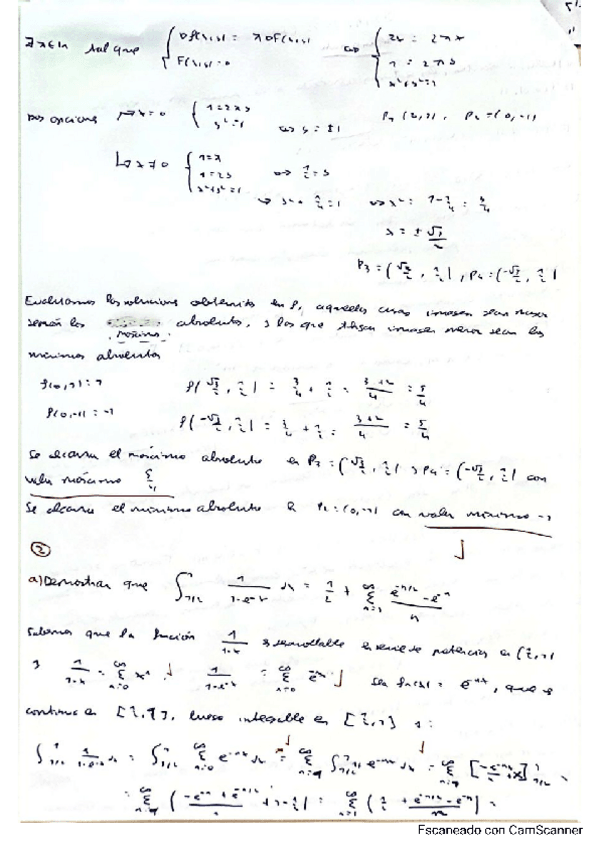 ∃ λ ∈ ℝ tal que { ∇f(x,y) = λ∇F(x,y) ⇔ { 2x = 2λx
F(x,y) = 0 1 = 2λy
x²+y²=1
Dos opciones ↦ x=0 { 1=2λy
y²=1 ⇔ y = ±1 P₁(0,1), P₂=(0,-1)
↳ x≠0 { 1=λ
1=2y ⇔ 1/2 = y
x²+y²=1
↪ x²+1/4=1 ⇔ x² = 1-1/4 = 3/4
x = ± √3/2
P₃ = (√3/2, 1/2), P₄ = (-√3/2, 1/2)
Evaluamos las soluciones obtenidas en f, aquellas cuyas imagen sean mayor
serán los máximos absolutos, y los que tengan imagen menor sean los
mínimos absolutos
f(0,1) = 1 f(√3/2, 1/2) = 3/4 + 1/2 = (3+2)/4 = 5/4
f(0,-1) = -1 f(-√3/2, 1/2) = 3/4 + 1/2 = (3+2)/4 = 5/4
Se alcanza el máximo absoluto en P₃ = (√3/2, 1/2) y P₄ = (-√3/2, 1/2) con
valor máximo 5/4
Se alcanza el mínimo absoluto en P₂ = (0,-1) con valor mínimo -1
②
a) Demostrar que ∫_{1/2}^{1} 1/(1-e^{-x}) dx = 1/2 + Σ_{n=1}^{∞} (e^{-n/2} - e^{-n})/n
Sabemos que la función 1/(1-x) es desarrollable en serie de potencias en
y 1/(1-x) = Σ_{n=0}^{∞} xⁿ 1/(1-e^{-x}) = Σ_{n=0}^{∞} e^{-nx} sea fₙ(x) = e^{-nx}, que es
continua en [1/2, 1], luego integrable en [1/2, 1] y:
∫_{1/2}^{1} 1/(1-e^{-x}) dx = ∫_{1/2}^{1} Σ_{n=0}^{∞} e^{-nx} dx = Σ ∫_{1/2}^{1} e^{-nx} dx = Σ [-e^{-nx}/n
= Σ (-e^{-n} + e^{-n/2}/n + 1 - 1/2) = Σ_{n=1}^{∞} (1/2 + (e^{-n/2} - e^{-n})/n) =
Escaneado con CamScanner